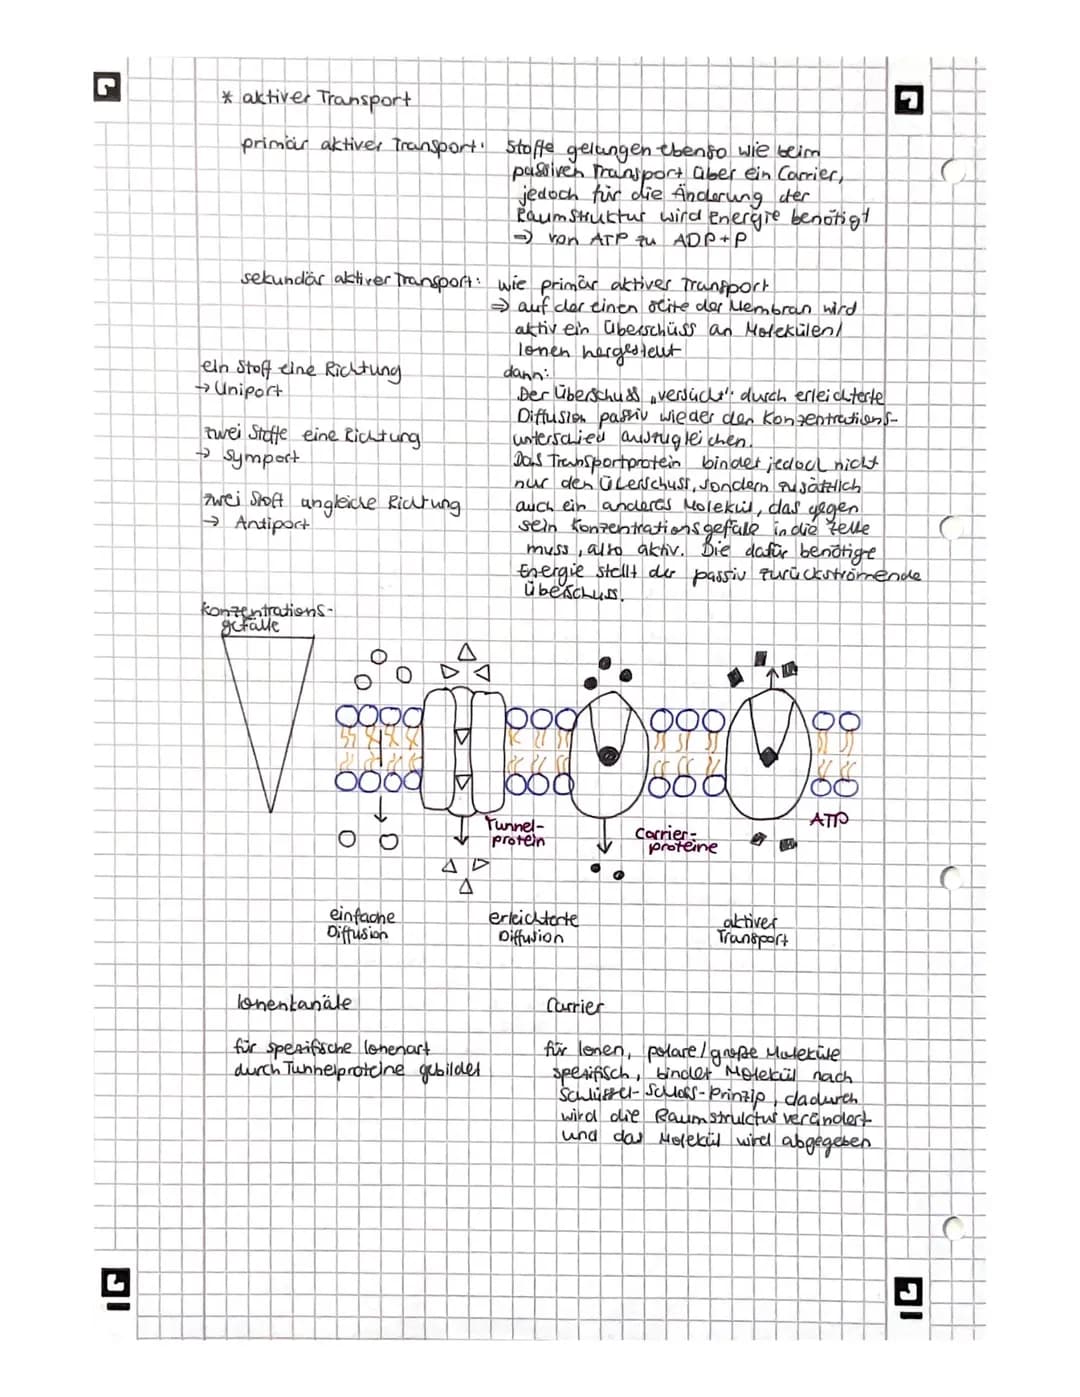 * aktiver Transport
primär aktiver Transport: Stoffe gelangen ebenso wie beim
passiven Transport über ein Carrier,
jedoch für die Änderung der
Raumstruktur wird Energie benötigt
=> von ATP zu ADP+P
sekundär aktiver Transport: wie primär aktiver Transport
=> auf der einen Seite der Membran wird
aktiv ein Überschuss an Molekülen/
Ionen hergestellt
dann:
Der Überschuss „versucht" durch erleichterte
Diffusion passiv wieder den Konzentrations-
unterschied auszugleichen.
Das Transportprotein bindet jedoch nicht
nur den Überschuss, sondern zusätzlich
auch ein anderes Molekül, das gegen
sein Konzentrationsgefälle in die Zelle
muss, also aktiv. Die dafür benötigte
Energie stellt der passiv zurückströmende
Überschuss.
ein Stoff eine Richtung
→ Uniport
zwei Stoffe eine Richtung
→ Symport
zwei Stoff angleiche Richtung
→ Antiport
Konzentrations-
gefälle
Tunnel-
protein
Carrier-
proteine
ATP
einfache
Diffusion
erleichterte
Diffusion
aktiver
Transport
Ionenkanäle
für spezifische Ionenart
durch Tunnelproteine gebildet
Carrier
für Ionen, polare/große Moleküle
spezifisch, bindet Molekül nach
Schlüssel-Schloss-Prinzip, dadurch
wird die Raumstruktur verändert
und das Molekül wird abgegeben